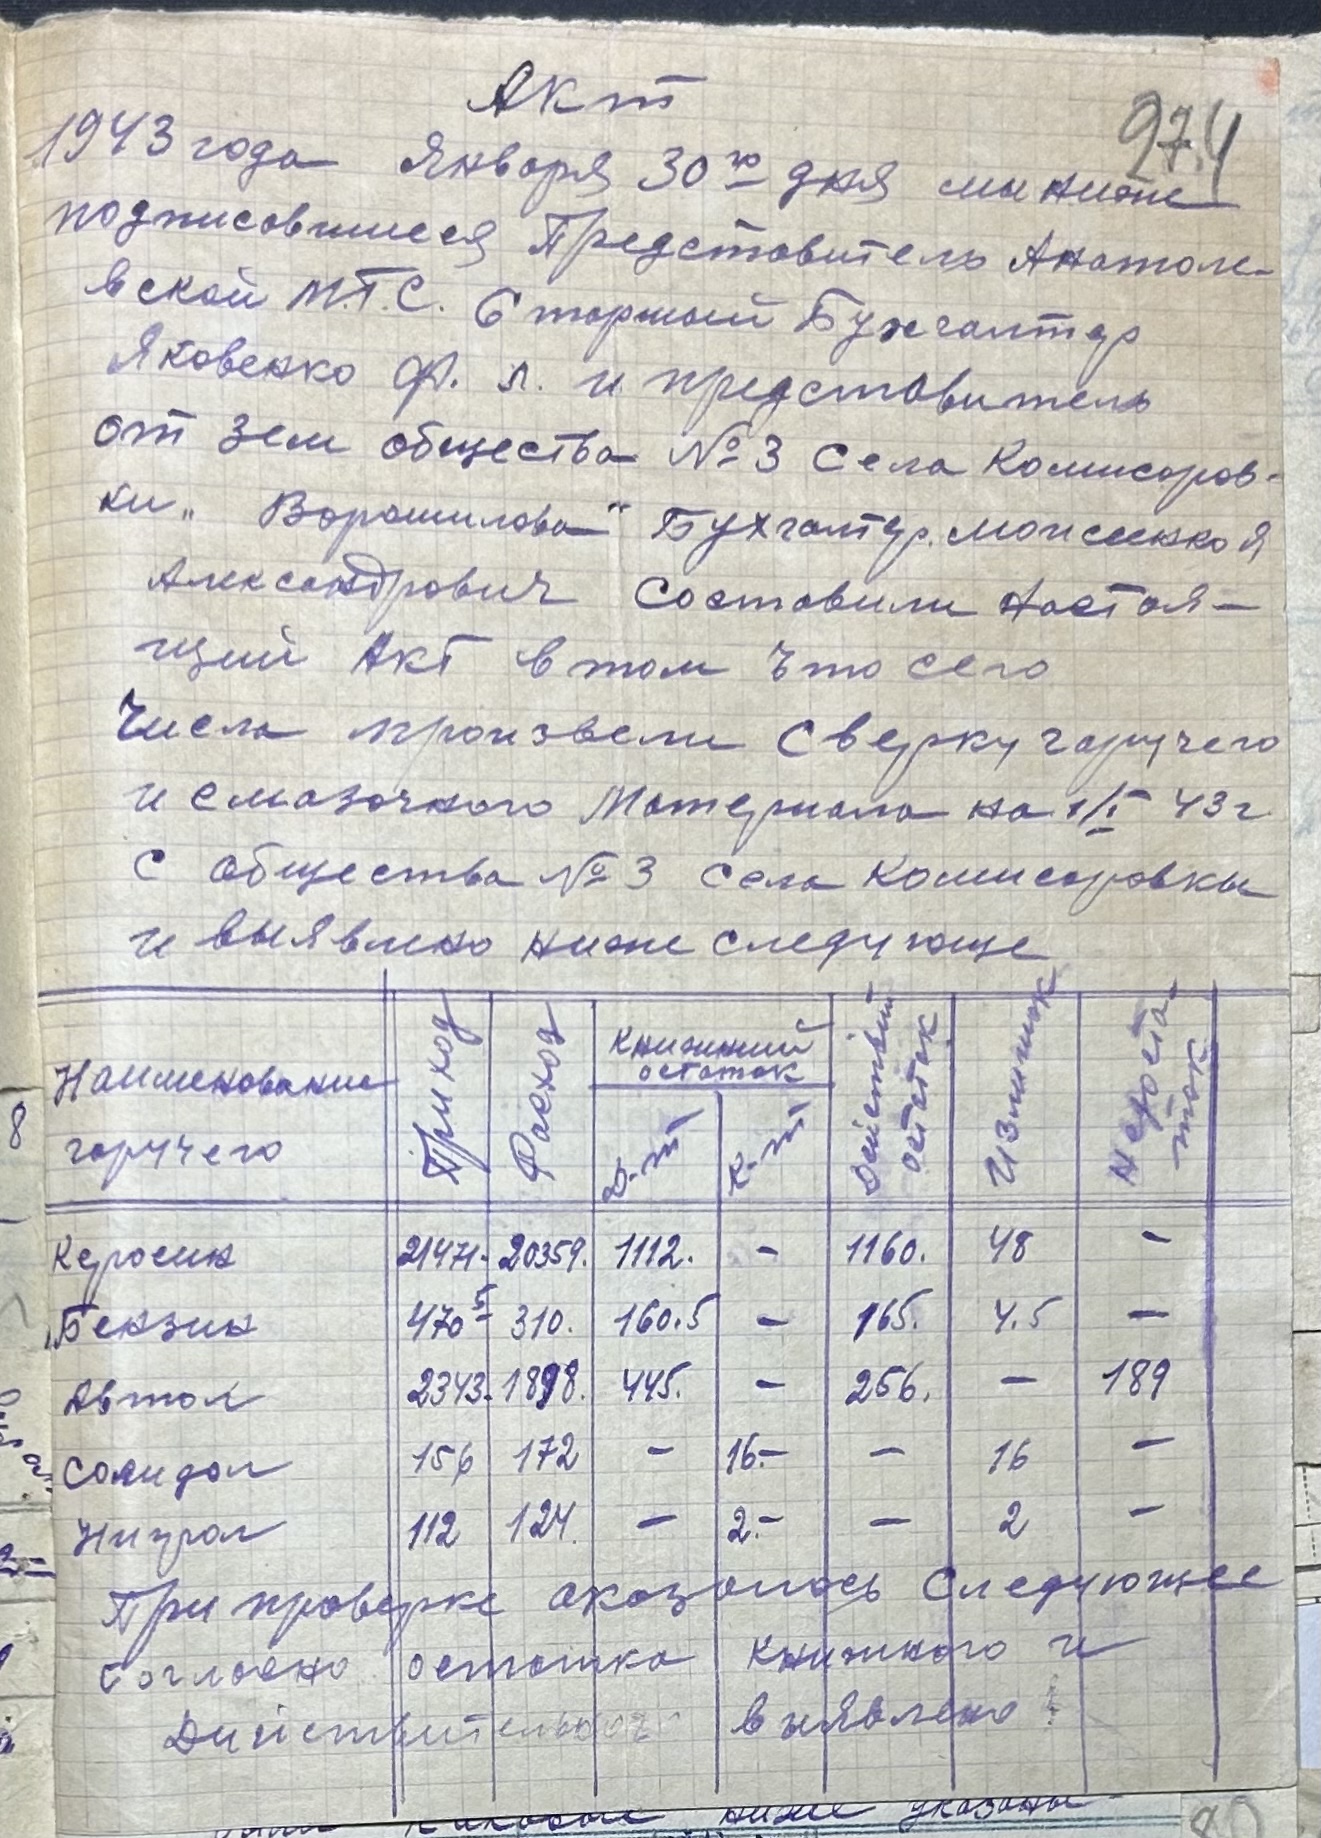 Акт
27.4
1943 года Января 30го дня мы ниже
подписавшиеся Представитель Анатоле-
вской М.Т.С. Старший Бухгалтер
Яковенко Ф. Л. и представитель
от Зем общества №3 Села Комисоров-
ки „Ворошилова" Бухгалтер
Александрович Составили настоя-
щий Акт в том что сего
Числа произвели Сверку горучего
и смазочного Материала на 1/I 43 г
С общества №3 Села Комисоровки
и выявлено ниже следующе
Наименование горучего | Приход | Расход | Книжний остаток Д-т | К-т | остаток | Излишок | Недоста-ток
Керосин 21471. 20359. 1112. - 1160. 48 -
Бензин 470 5 310. 160.5 - 165. 4.5 -
Автол 2343. 1898. 445. - 256. - 189
Солидол 156 172 - 16.- - 16 -
Нигрол 112 124 - 2.- - 2 -
При проверке оказалось Следующее
Согласно остатка Книжного и
выявлено:
ниже указаны
8